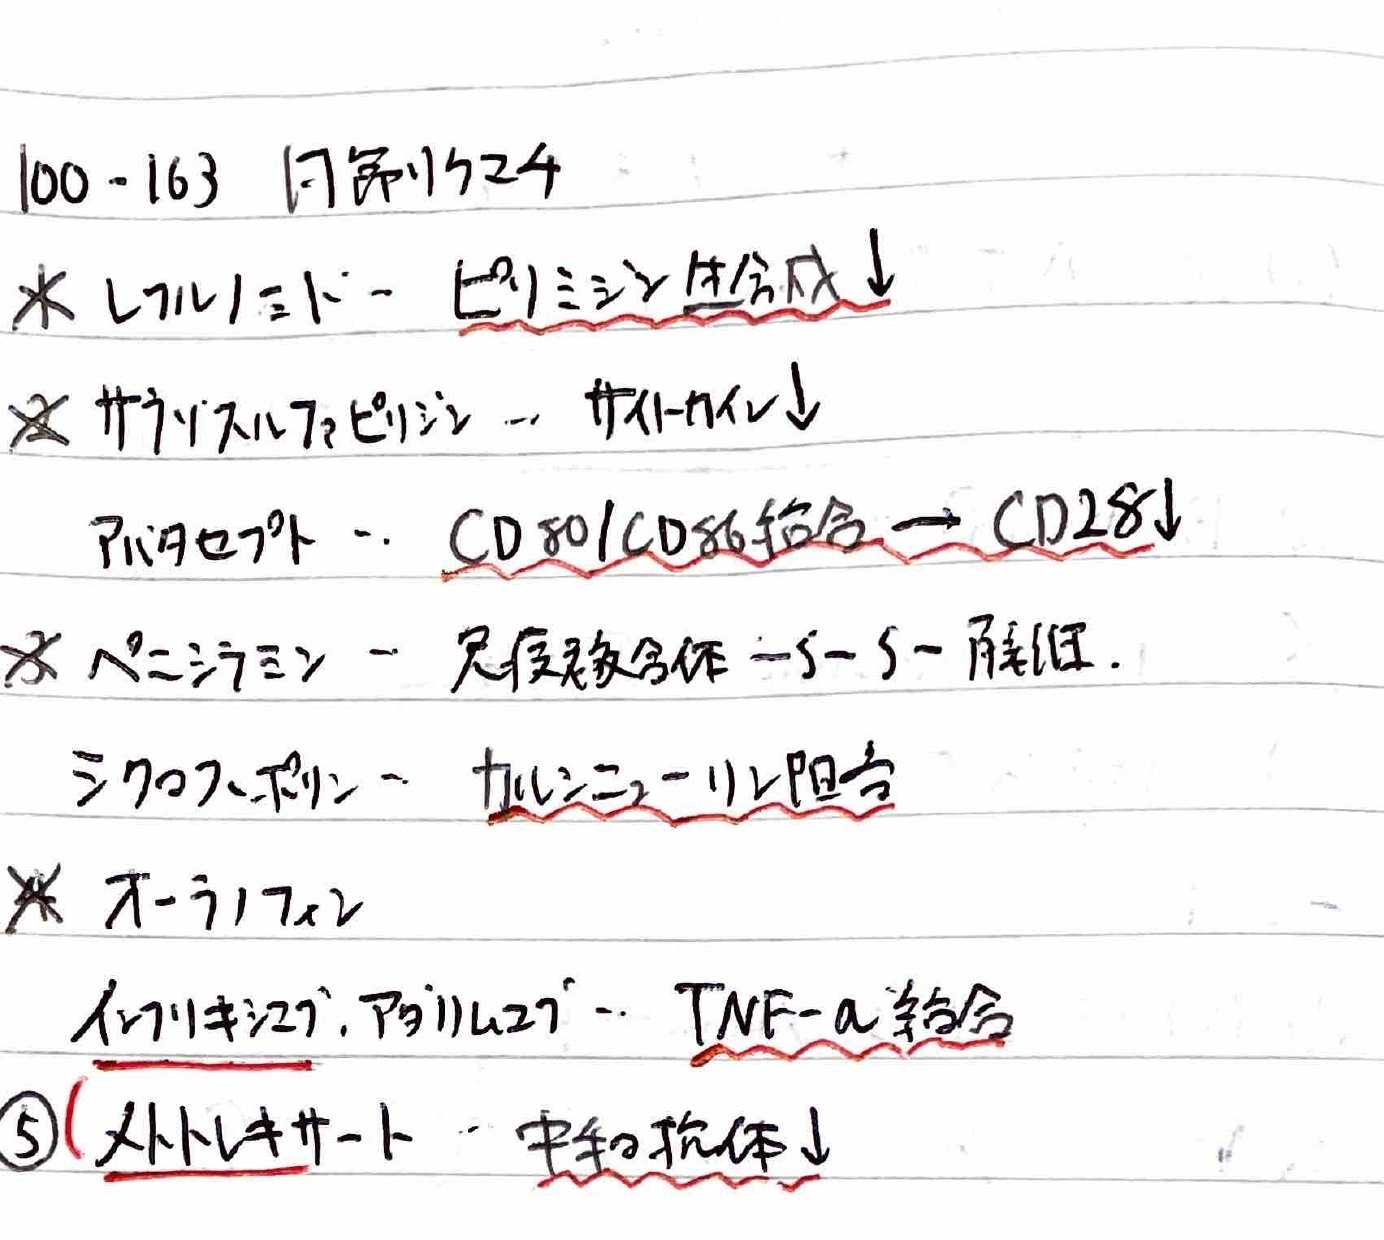 100-163 関節リウマチ
※ レフルノミド‥ ピリミジン生合成↓
※ サラゾスルファピリジン‥ サイトカイン↓
アバタセプト‥ CD80/CD86結合→CD28↓
※ ペニシラミン‥ 免疫複合体-S-S-解離.
シクロスポリン‥ カルシニューリン阻害
※ オーラノフィン
インフリキシマブ、アダリムマブ‥ TNF-α結合
⑤(メトトレキサート‥ 中和抗体↓